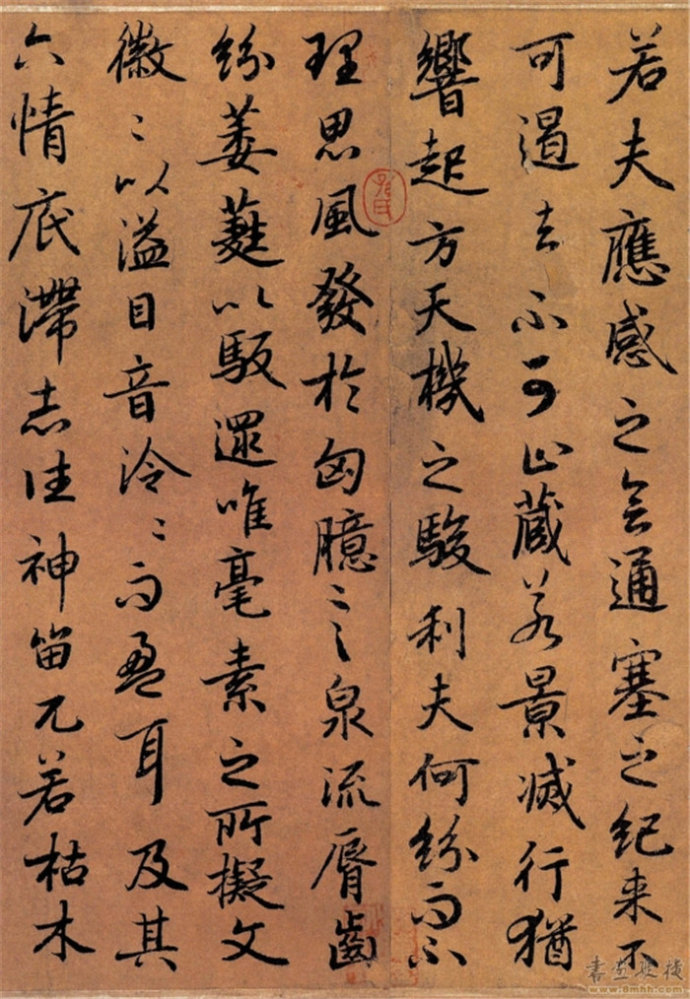 若夫應感之會通塞之紀来不
可遏去不可止蔵若景滅行猶
響起方天機之駿利夫何紛而不
理思風發於匈臆言泉流脣齒
紛萎蕤以馺遝唯毫素之所擬文
徽〻以溢目音泠〻而盈耳及其
六情底滯志往神留兀若枯木
www.8mhh.com